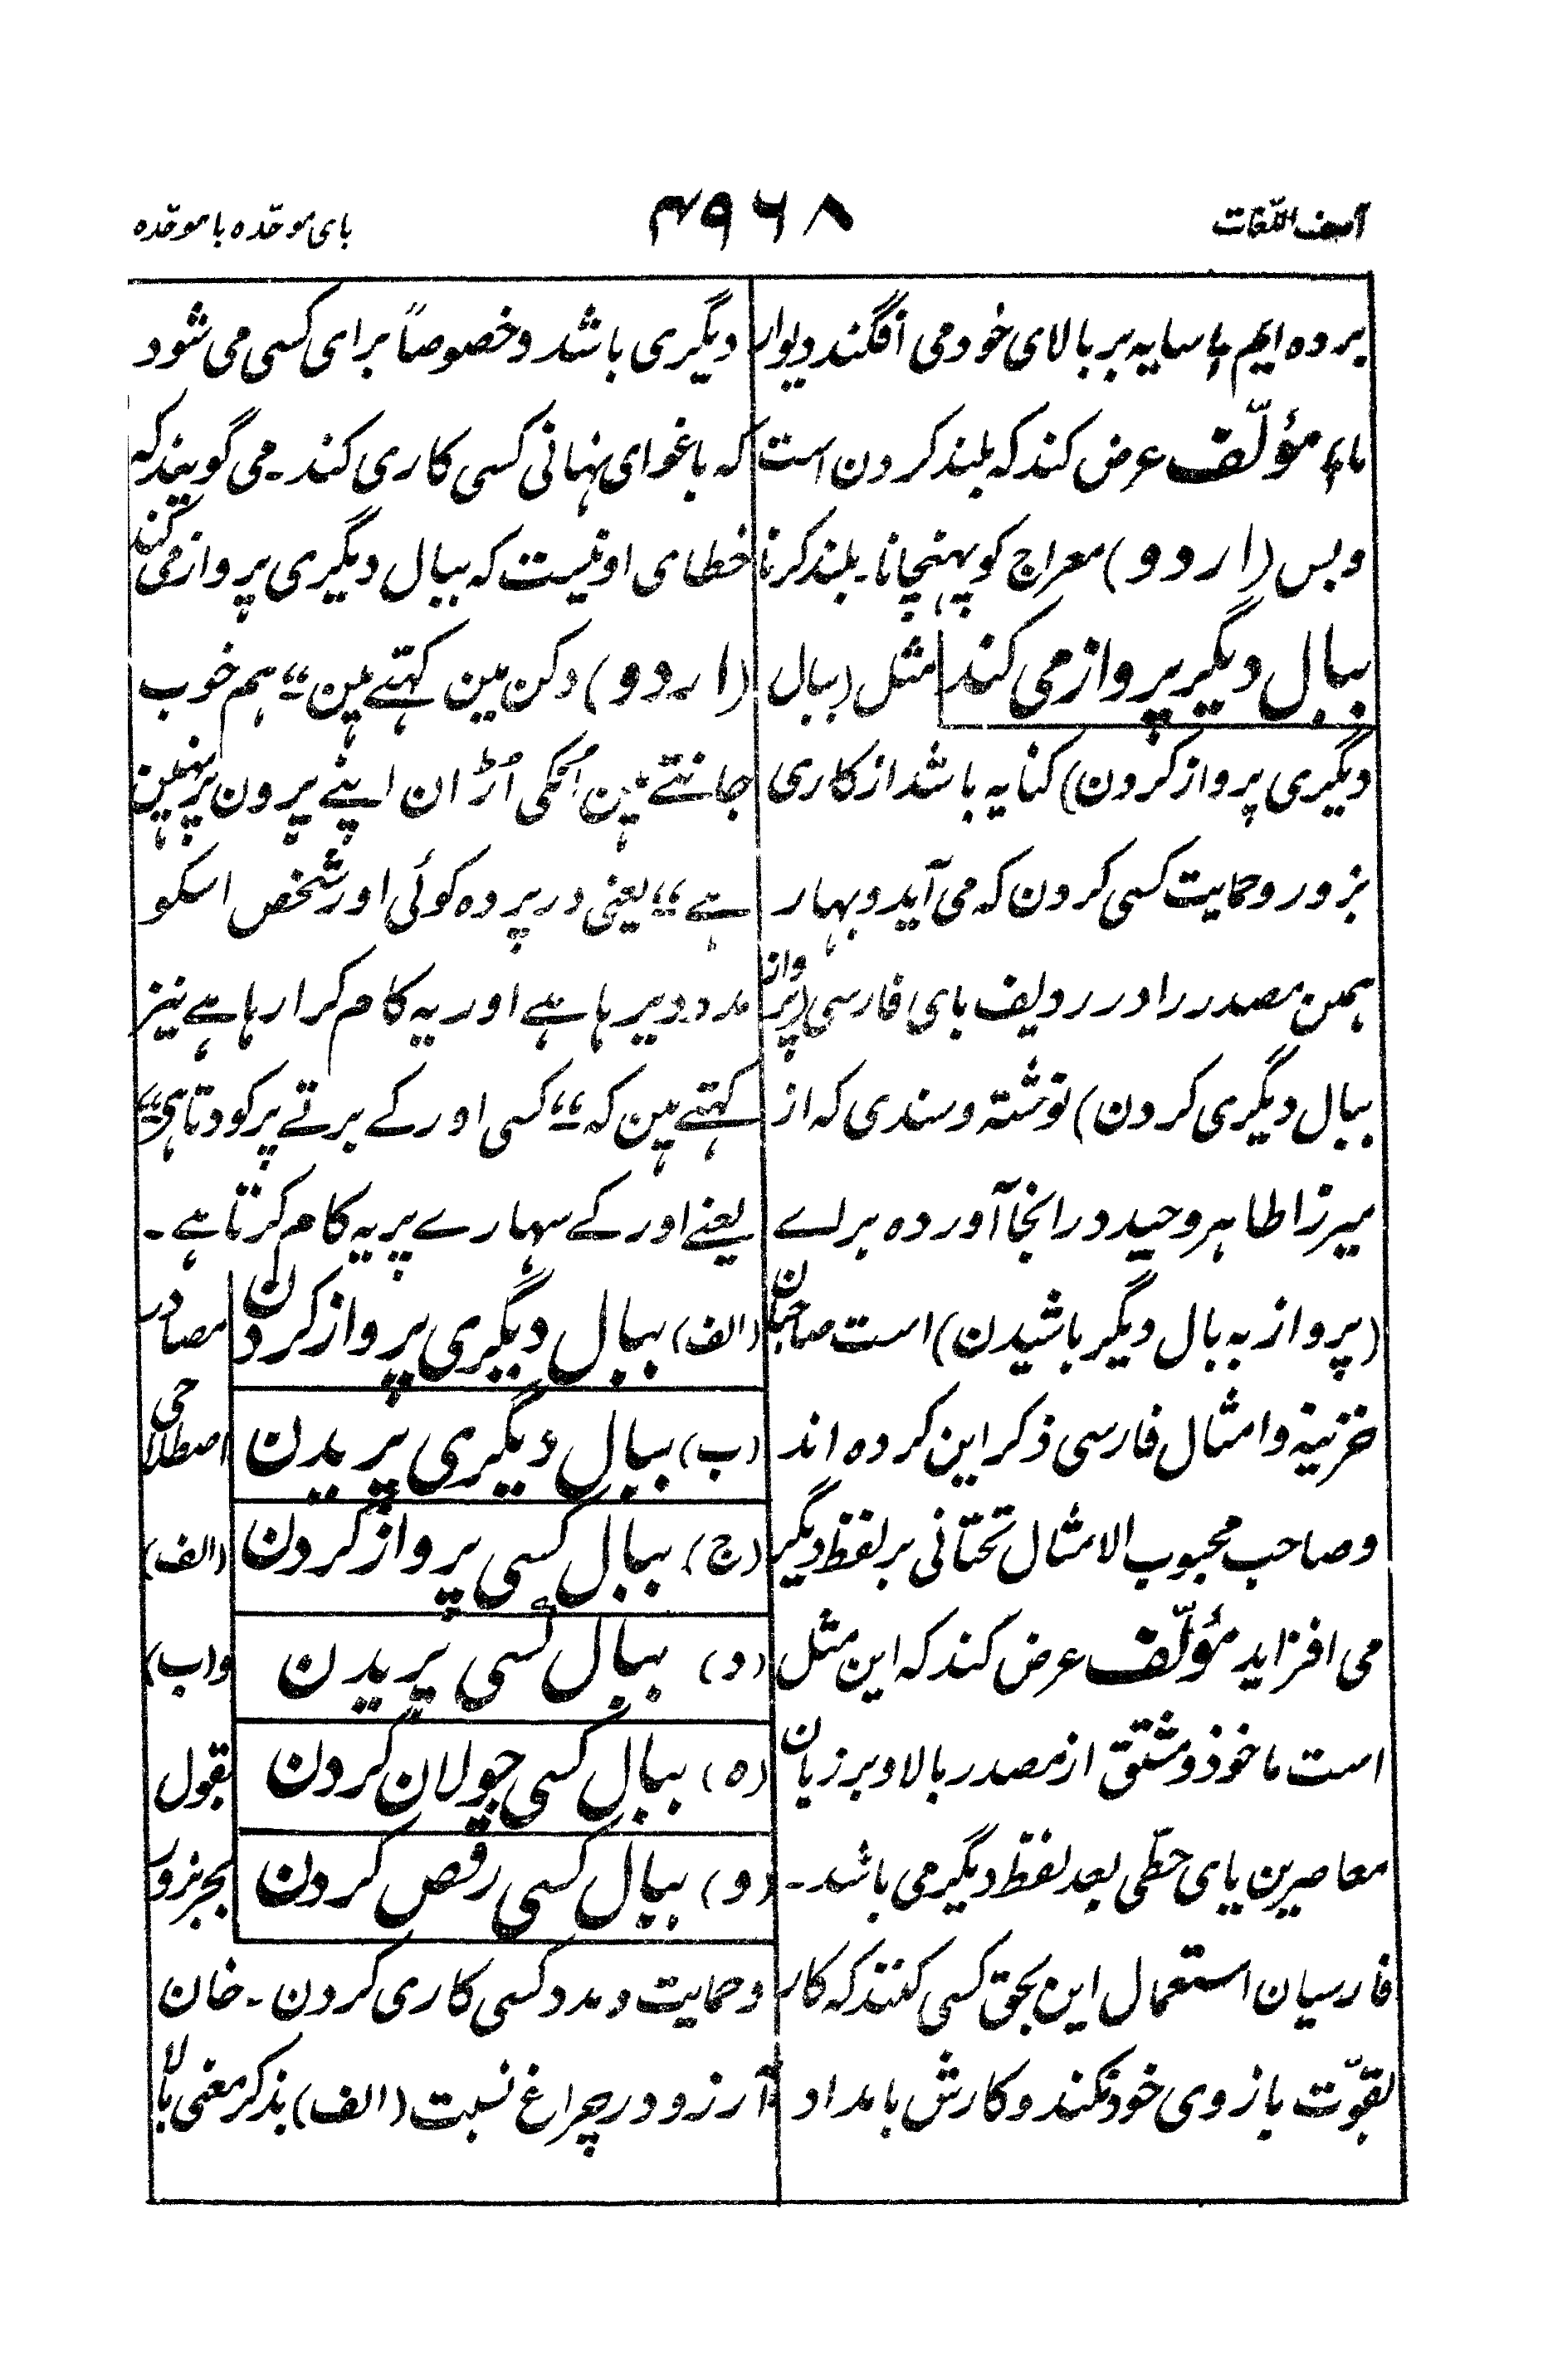 آصف اللغات
۴۹۶۸
بای موحّده با موحّده
برده ایم ؛ سایه بر بالای خود می افگند دیوار
ما ؛ مؤلّف عرض کند که بلند کردن است
و بس (اردو) معراج کو پہنچانا۔ بلند کرنا
ببال دیگر پرواز می کند مثل (ببال
دیگری پرواز کردن) کنایه باشد از کاری
بزور و حمایت کسی کردن که می آید و بہار
ہمین مصدر را در ردیف بای فارسی (پرواز
ببال دیگری کردن) نوشته و سندی که از
میرزا طاہر وحید در انجا آورده براے
(پرواز به بال دیگر باشیدن) است صاحبان
خزینة و امثال فارسی ذکر این کرده اند
و صاحب محبوب الامثال تحتانی بر لفظ دیگر
می افزاید مؤلّف عرض کند که این مثل
است ماخوذ و مشتق از مصدر بالا و بر زبان
معاصرین یای حطّی بعد لفظ دیگر می باشد۔
فارسیان استعمال این بحق کسی کنند که کار
بقوّت بازوی خود نکند و کارش بامداد
دیگری باشد و خصوصاً برای کسی می شود
که باغوای نہانی کسی کاری کند۔ می گویند که
خطای او نیست که ببال دیگری پرواز می کند
(اردو) دکن مین کہتے ہین ‟ہم خوب
جانتے ہین اُنکی اُڑان اپنے پرون پر نہین
ہے“ یعنی در پرده کوئی اور شخص اسکو
مدد دیرہا ہے اور یہ کام کرا رہا ہے نیز
کہتے ہین کہ ‟کسی اور کے برتے پر کودتا ہی“
یعنے اور کے سہارے پر یہ کام کرتا ہے۔
(الف) ببال دیگری پرواز کردن مصادر
(ب) ببال دیگری پریدن اصطلاحی
(ج) ببال کسی پرواز کردن (الف)
(د) ببال کسی پریدن و (ب)
(ه) ببال کسی جولان کردن بقول
(و) ببال کسی رقص کردن بحر بزور
و حمایت و مدد کسی کاری کردن۔ خان
آرزو در چراغ نسبت (الف) بذکر معنی بالا